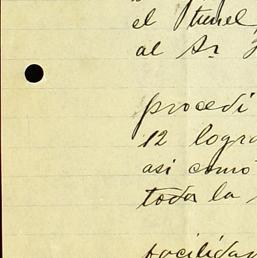 el tunel,
al Sr
procedi
12 logra
asi como
toda la
facilidad